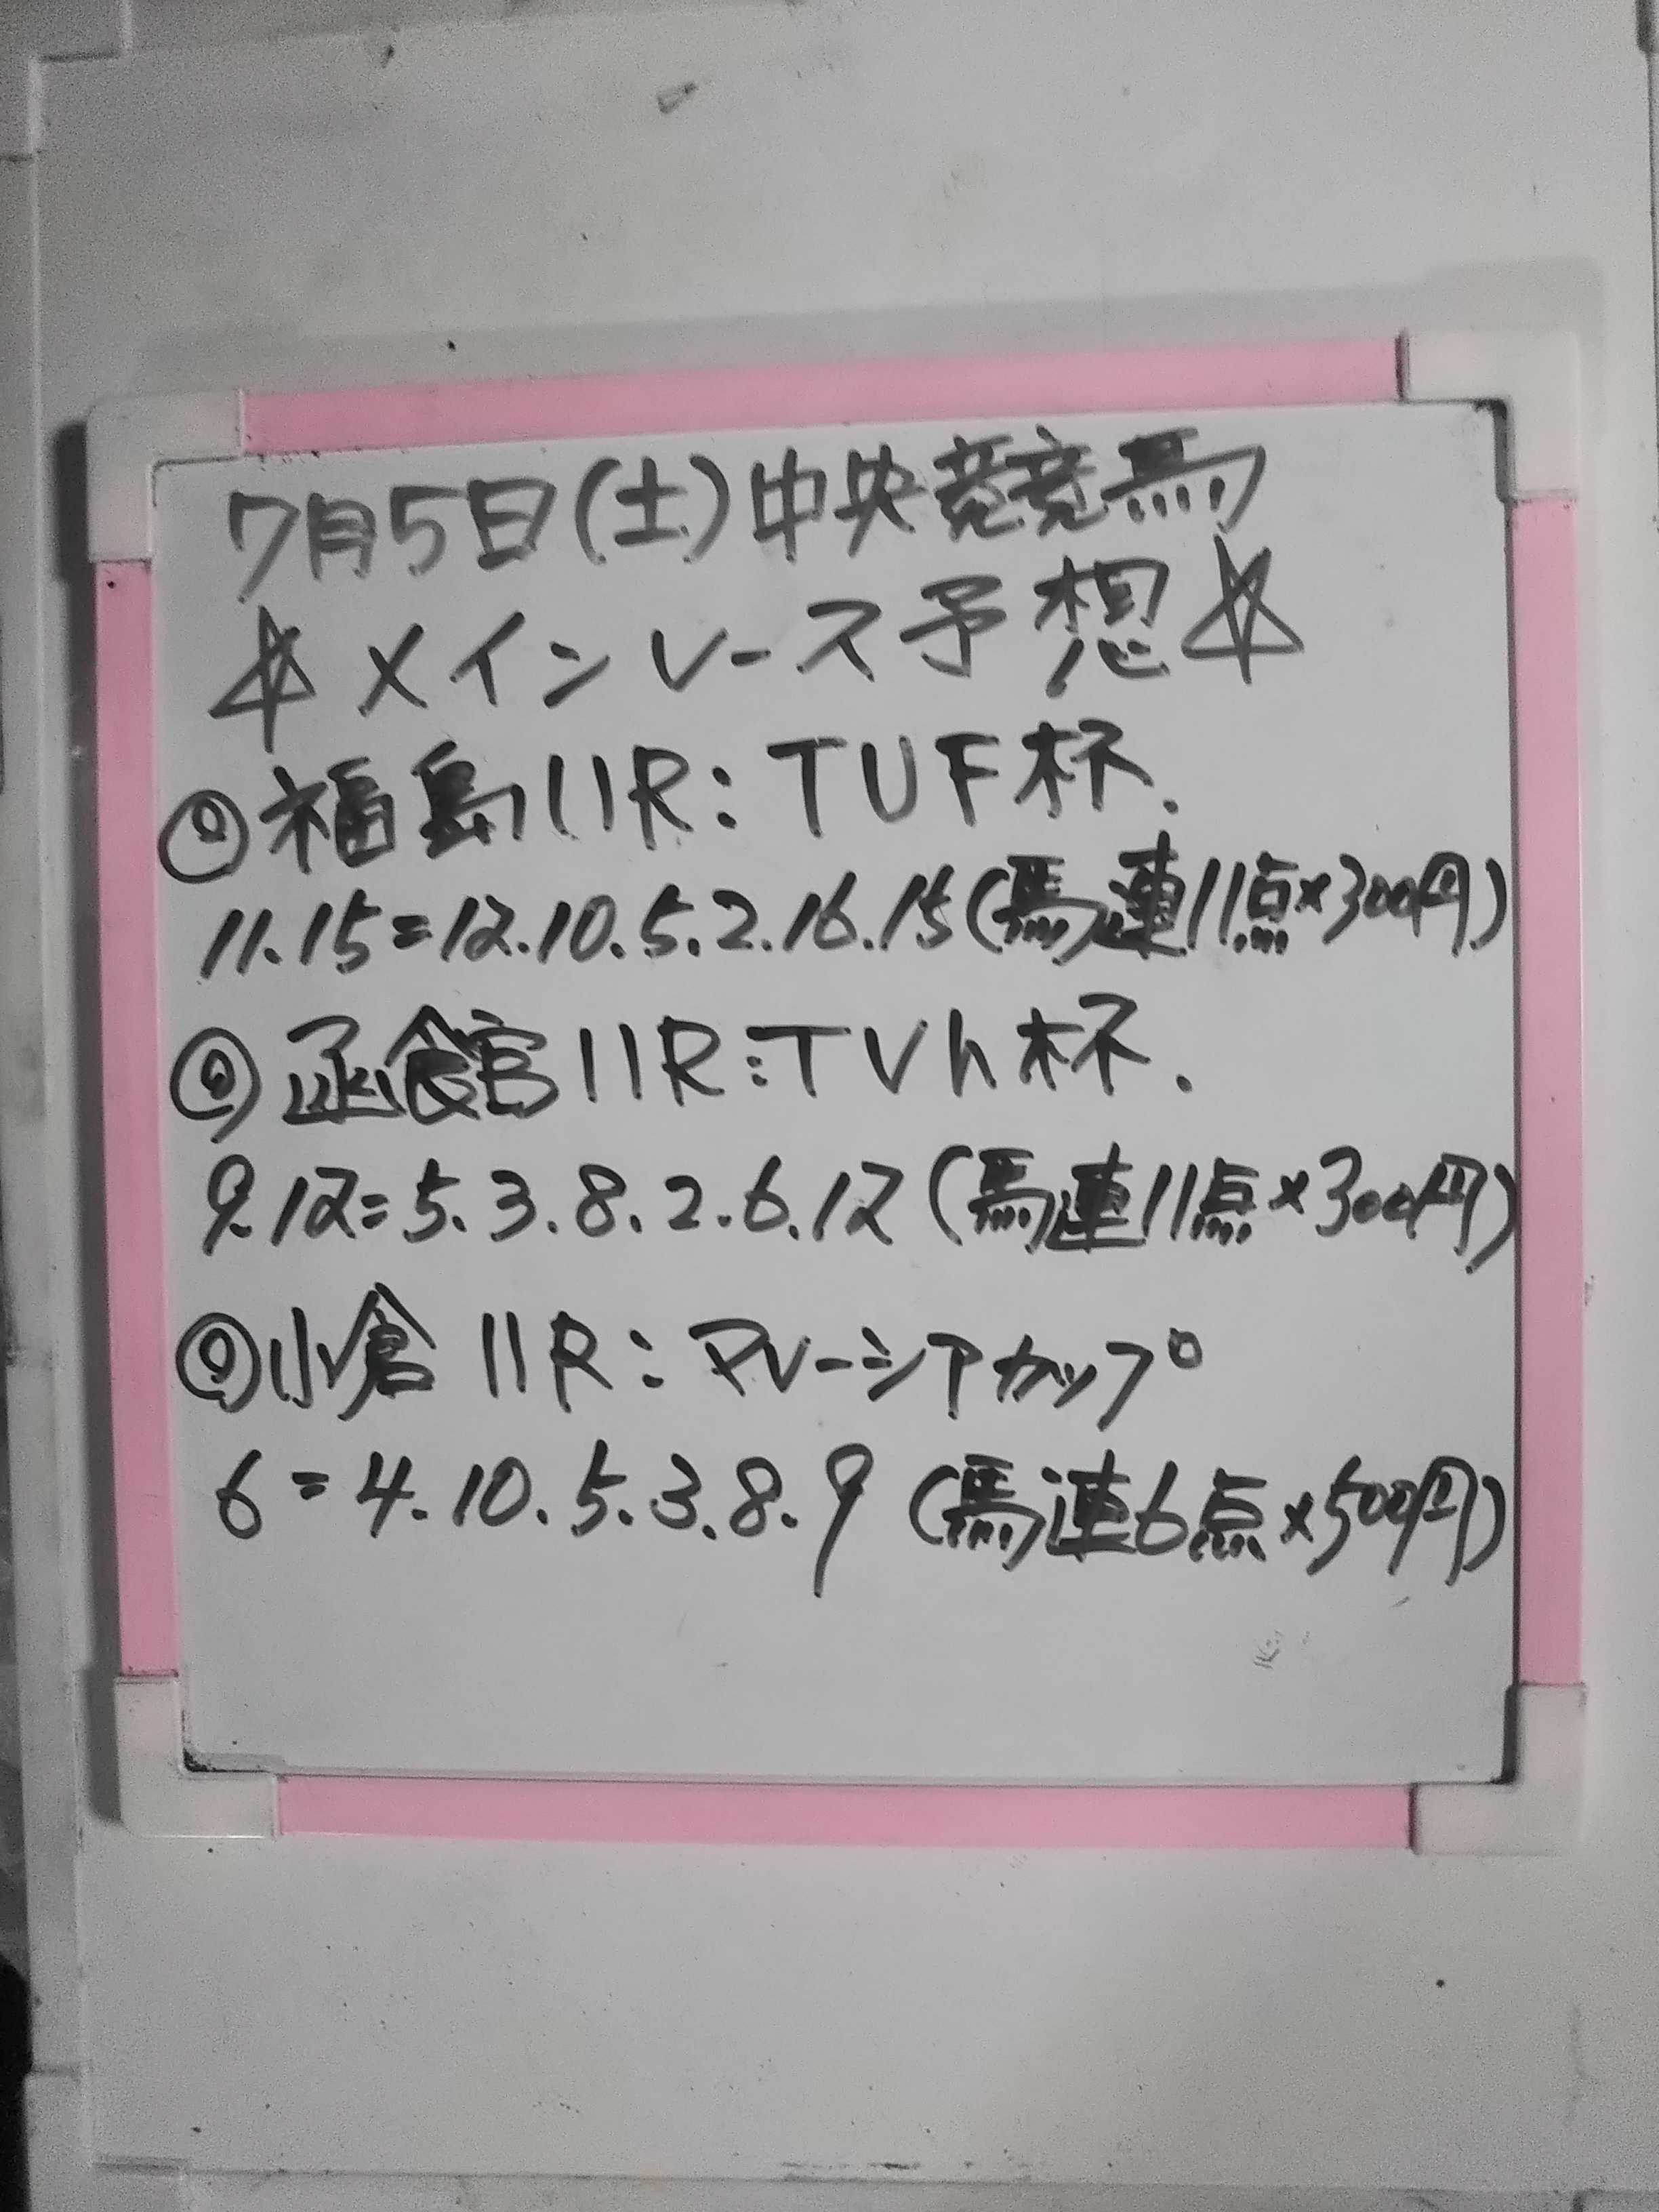 7月5日(土)中央競馬
☆メインレース予想☆
◎福島11R:TUF杯.
11.15=12.10.5.2.16.15(馬連11点×300円)
◎函館11R:TVh杯.
9.12=5.3.8.2.6.12(馬連11点×300円)
◎小倉11R:マレーシアカップ
6=4.10.5.3.8.9(馬連6点×500円)